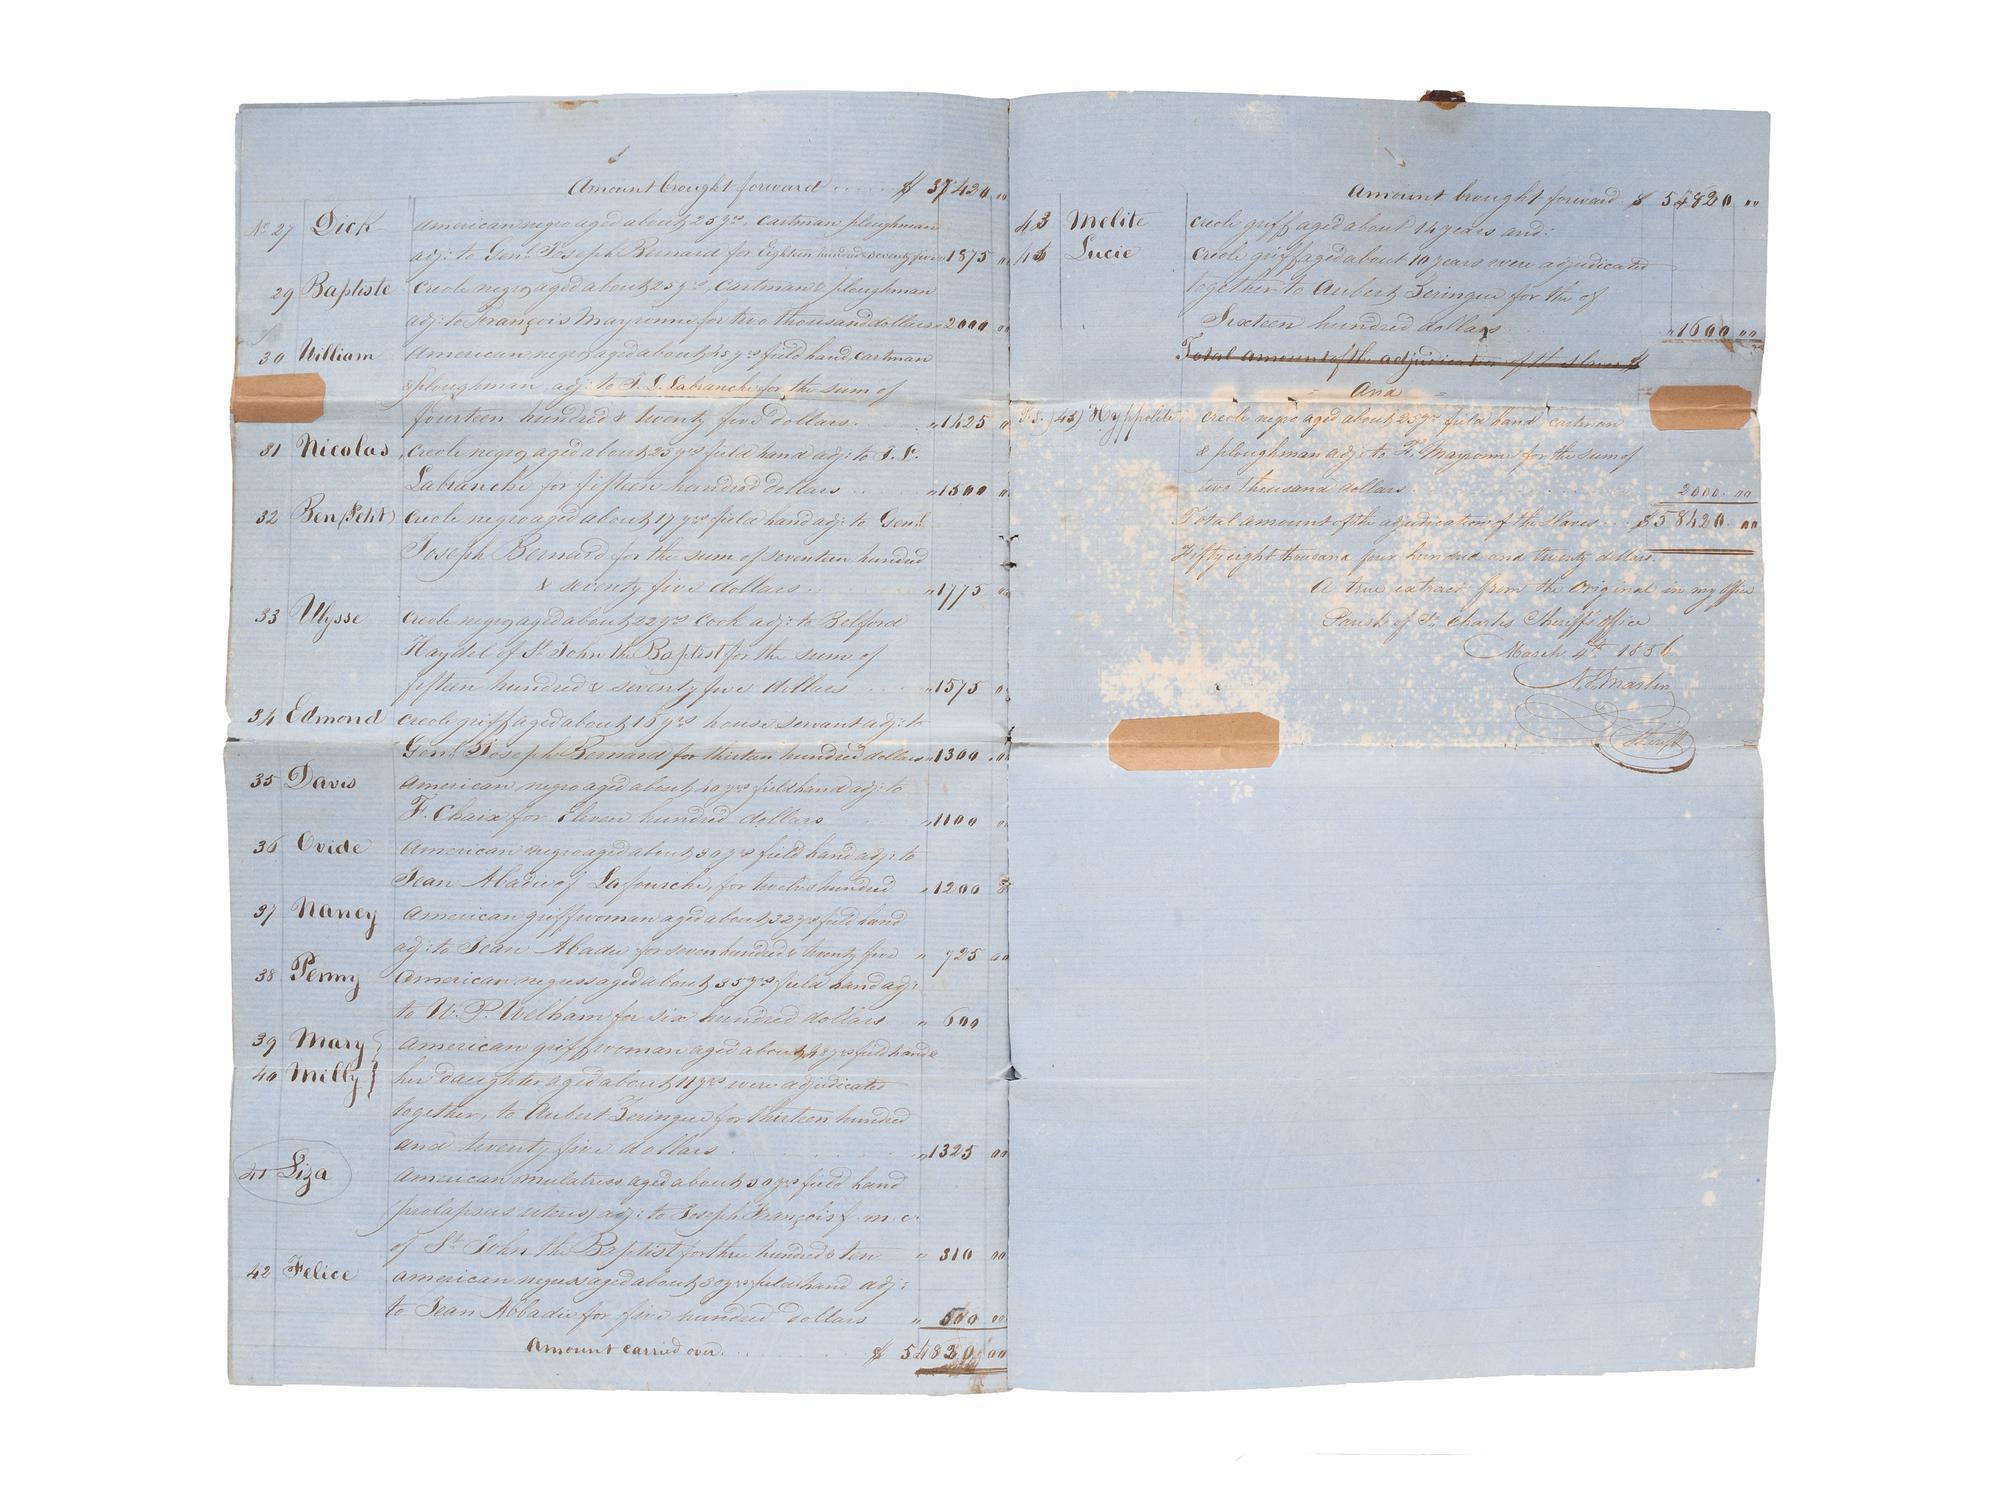 Amount brought forward ..... $ 37420 00
No 27 Dick American negro aged about 25 yrs, Cartman ploughman
adj: to Genl Joseph Bernard for Eighteen hundred & seventy five " 1875 00
29 Baptiste Creole negro, aged about 25 yrs, Cartman & ploughman
adj: to François Mayronne for two thousand dollars " 2000 00
30 William American negro aged about 45 yrs field hand cartman
& ploughman, adj: to J. L. Labranche for the sum of
fourteen hundred & twenty five dollars. " 1425 0
31 Nicolas Creole negro, aged about 25 yrs field hand adj: to J. L.
Labranche for fifteen hundred dollars .. " 1500 00
32 Ben (Petit) Creole negro aged about 17 yrs field hand adj: to Genl
Joseph Bernard for the sum of seventeen hundred
& seventy five dollars. " 1775 00
33 Ulysse Creole negro, aged about 22 yrs Cook adj: to Belford
Haydel of St John the Baptist for the sum of
fifteen hundred & seventy five dollars .... " 1575 00
34 Edmond Creole griff aged about 15 yrs house servant adj: to
Genl Joseph Bernard for thirteen hundred dollars " 1300 00
35 Davis American negro aged about 40 yrs field hand adj: to
F. Chaix for Eleven hundred dollars " 1100 00
36 Ovide American negro aged about 30 yrs field hand adj: to
Jean Abadie of Lafourche, for twelve hundred " 1200 00
37 Nancy American griff woman aged about 32 yrs field hand
adj: to Jean Abadie for seven hundred & twenty five " 725 00
38 Penny American negress aged about 35 yrs field hand adj:
to W. P. Welham for six hundred dollars " 600
39 Mary } American griff woman aged about 48 yrs field hand &
40 Milly } her daughter aged about 11 yrs were adjudicated
together, to Aubert Zeringue for thirteen hundred
and twenty five dollars ..... " 1325 00
41 Liza American mulatress aged about 30 yrs field hand
(prolapsus uterus) adj: to Joseph François f. m. c.
of St John the Baptist for three hundred & ten " 310 00
42 Felice American negress aged about 30 yrs field hand adj:
to Jean Abbadie for five hundred dollars " 500 00
Amount carried over ........ $ 54820 00
Amount brought forward $ 54820 00
43 Melite Creole griff aged about 14 years and:
44 Lucie Creole griff aged about 10 years were adjudicated
together to Aubert Zeringue for the of
Sixteen hundred dollars " 1600 00
Total amount of the adjudication of the slaves $
And
(45) Hyppolite Creole negro aged about 25 yrs field hand cartman
& ploughman adj: to Fs Mayronne for the sum of
two thousand dollars 2000. 00
Total amount of the adjudication of the slaves .. $ 58420. 00
Fifty eight thousand four hundred and twenty dollars.
A true extract from the Original in my office
Parish of St Charles Sheriff's office
March 4th 1856
Martin
Sheriff